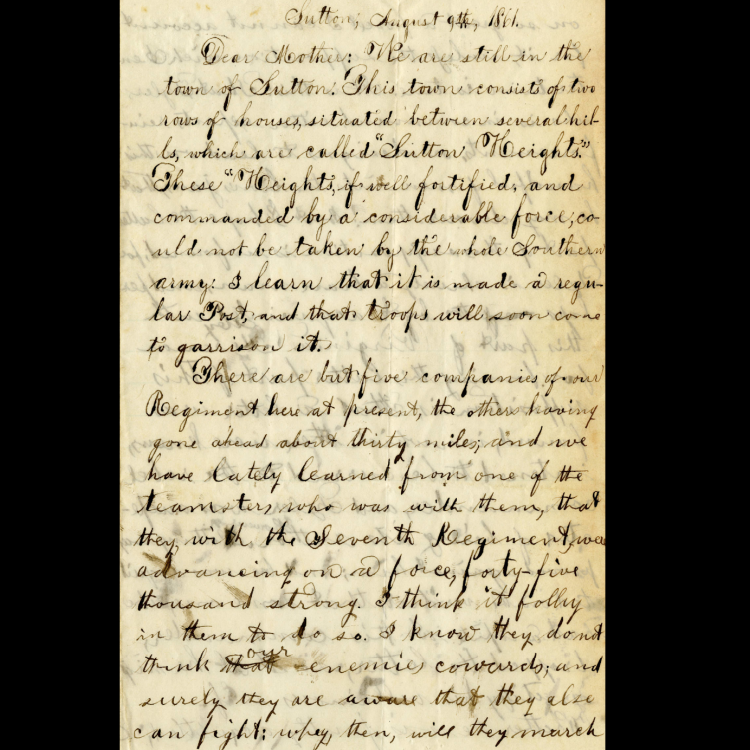 Sutton, August 9th, 1861.
Dear Mother: We are still in the
town of Sutton. This town consists of two
rows of houses, situated between several hil-
ls, which are called "Sutton Heights."
These "Heights, if well fortified, and
commanded by a considerable force, co-
uld not be taken by the whole Southern
army: I learn that it is made a regu-
lar Post, and that troops will soon come
to garrison it.
There are but five companies of our
Regiment here at present, the others having
gone ahead about thirty miles; and we
have lately learned from one of the
teamsters who was with them, that
they, with the Seventh Regiment, was
advancing on a force, forty-five
thousand strong. I think it folly
in them to do so. I know they don't
think that our enemies cowards; and
surely they are aware that they also
can fight: why, then, will they march